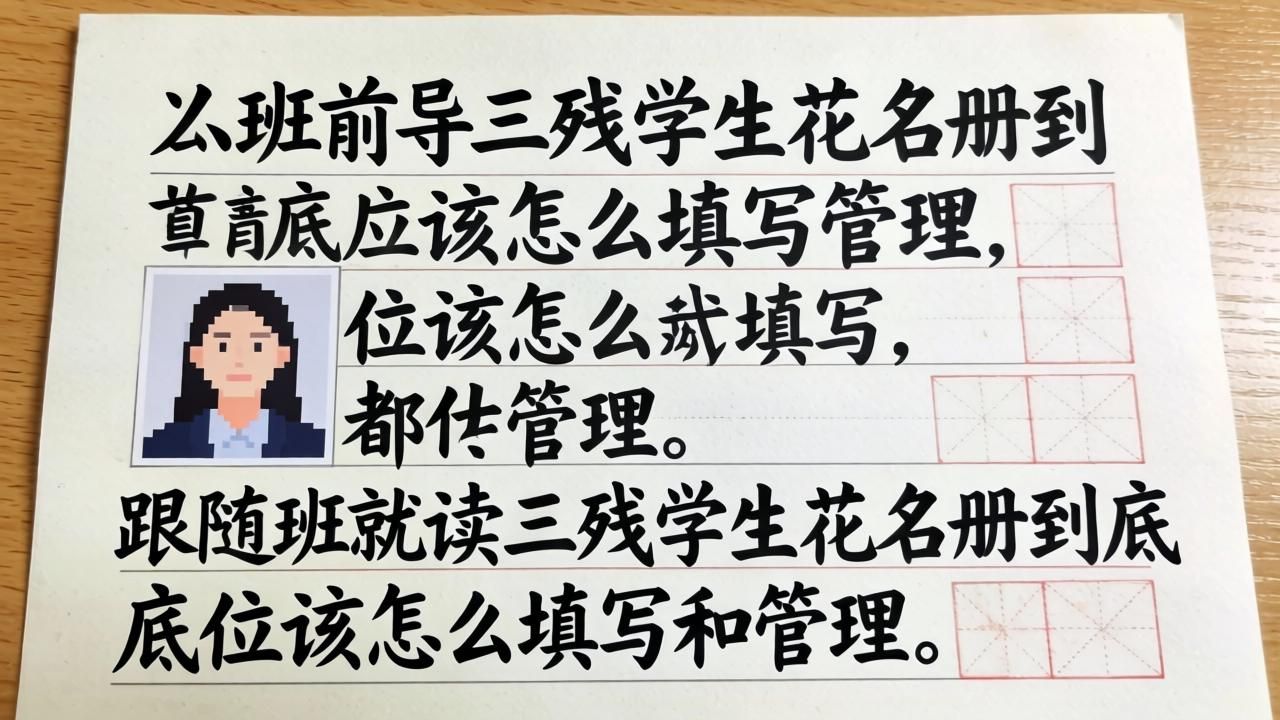 么班前导三残学生花名册到
底应该怎么填写管理,
位该怎么填写,
都管理。
跟随班就读三残学生花名册到底
底位该怎么填写和管理。